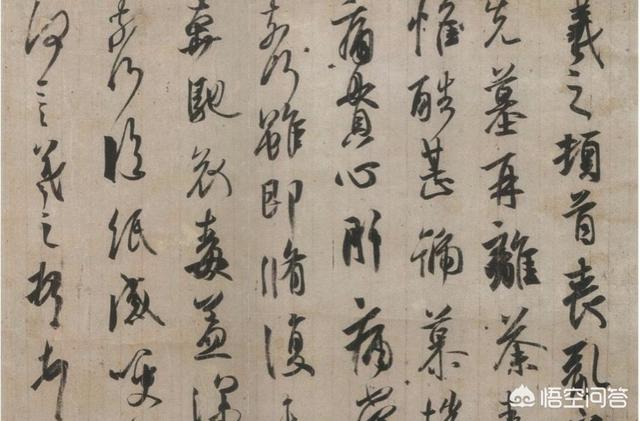 羲之頓首喪亂
先墓再離荼毒
惟酷甚號慕摧
痛貫心肝痛當
奈何雖即脩復
奔馳哀毒益深
奈何臨紙感哽
何言羲之頓首
悟空问答